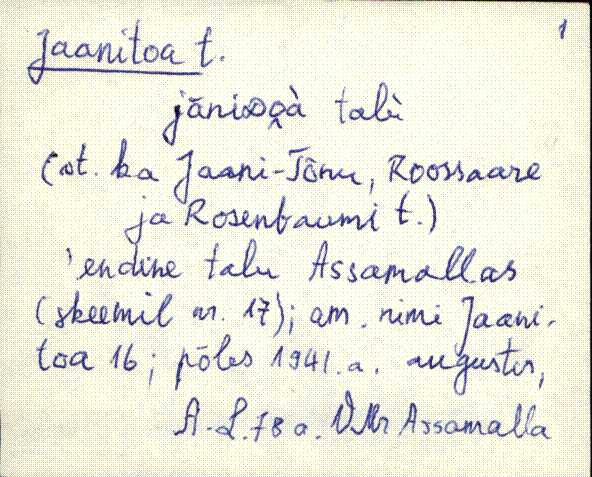 1
Jaanitoa t.
talù
(vt. ka Jaani-Tõnu, Roossaare
ja Rosenbaumi t.)
'endine talu Assamallas
(skeemil nr. 17); am. nimi Jaani-
toa 16; põles 1941.a. augustis,
A.L. 78 a. VMr Assamalla